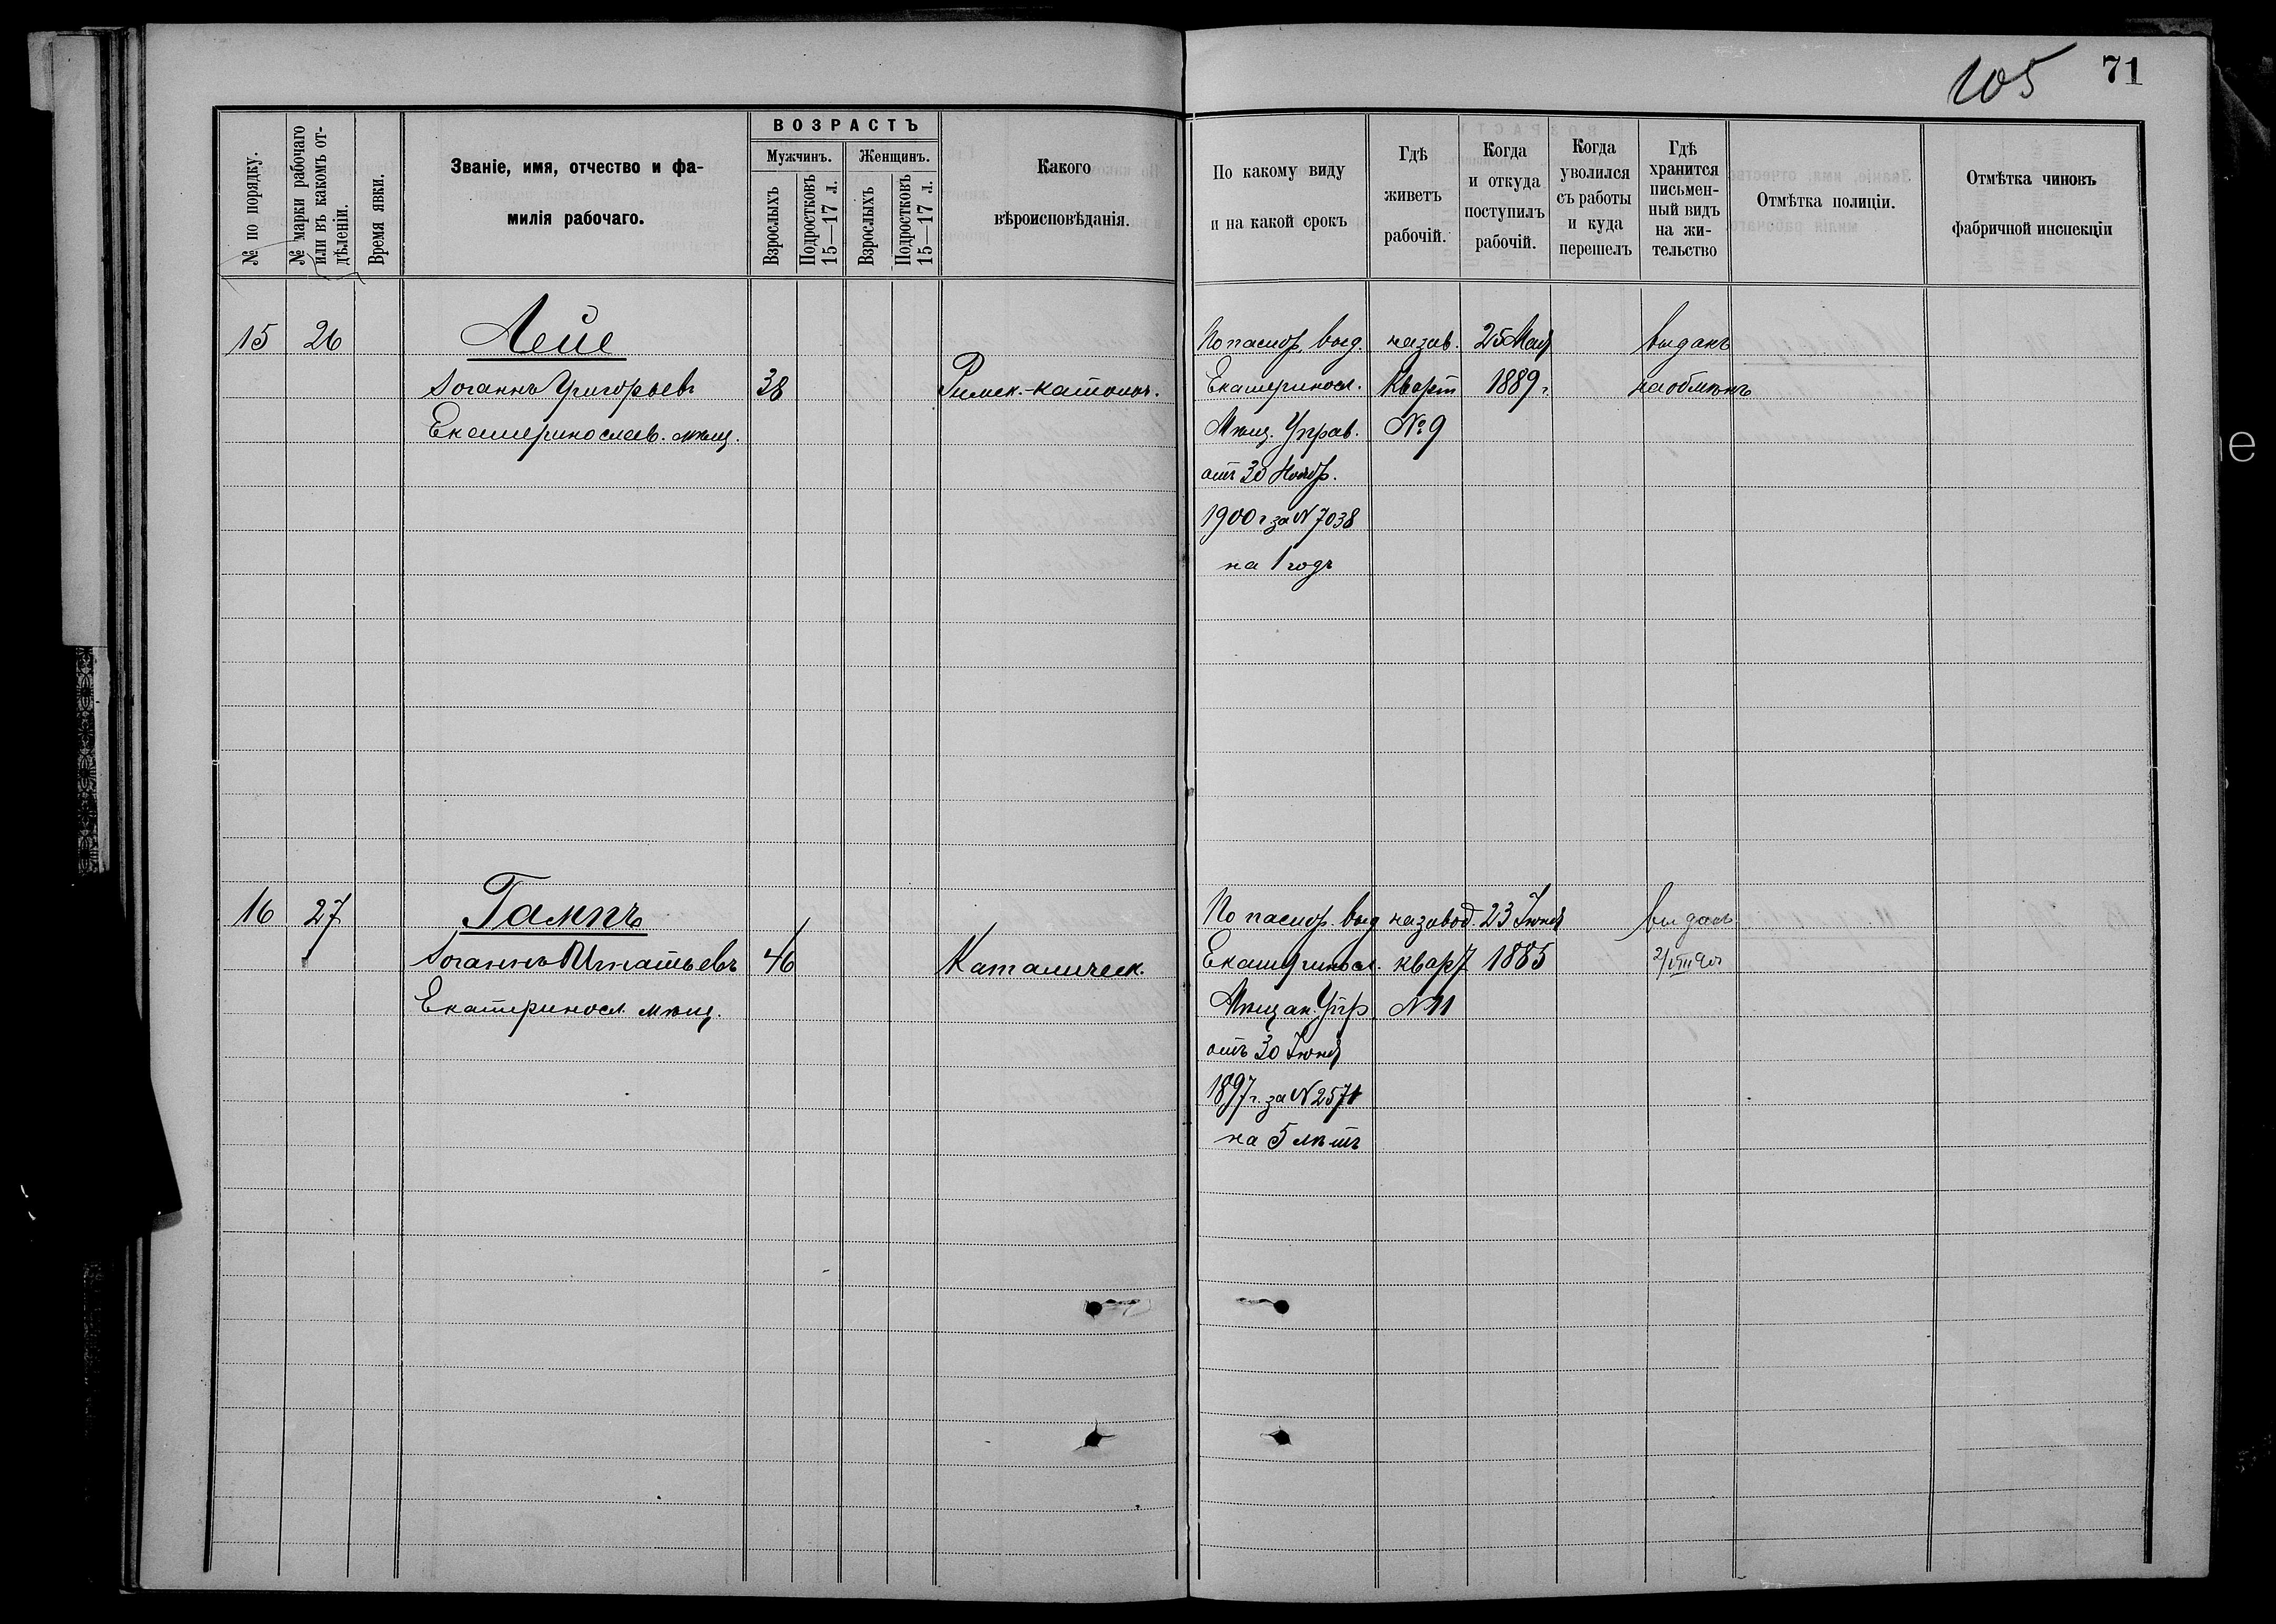 105 71
№ по порядку.
№ марки рабочаго или въ какомъ отдѣленіи.
Время явки.
Званіе, имя, отчество и фа-
милія рабочаго.
ВОЗРАСТЪ
Мужчинъ.
Женщинъ.
Взрослыхъ
Подростковъ 15—17 л.
Взрослыхъ
Подростковъ 15—17 л.
Какого
вѣроисповѣданія.
По какому виду
и на какой срокъ
Гдѣ
живетъ
рабочій.
Когда
и откуда
поступилъ
рабочій.
Когда
уволился
съ работы
и куда
перешелъ
Гдѣ
хранится
письмен-
ный видъ
на жи-
тельство
Отмѣтка полиціи.
Отмѣтка чиновъ
фабричной инспекціи
15 26 Лейе
Іоганнъ Григорьевъ 38 Римск.-католич.
Екатеринослав. мѣщ.
По паспор. выд. на зав. 25 Мая выданъ
Екатеринося. Кварт 1889 г. на обмѣнъ
Мѣщ. Управ. № 9
отъ 30 Ноябр.
1900 г за N 7038
на 1 годъ
16 27 Гампъ
Іоганнъ Игнатьевъ 46 Католическ.
Екатериносл. мѣщ.
По паспор. выд на завод. 23 Іюня выданъ
Екатериносл. кварт 1885 2/VIII 901
Мѣщан. Упр. N 11
отъ 30 Іюня
1897 г. за N 2571
на 5 лѣтъ